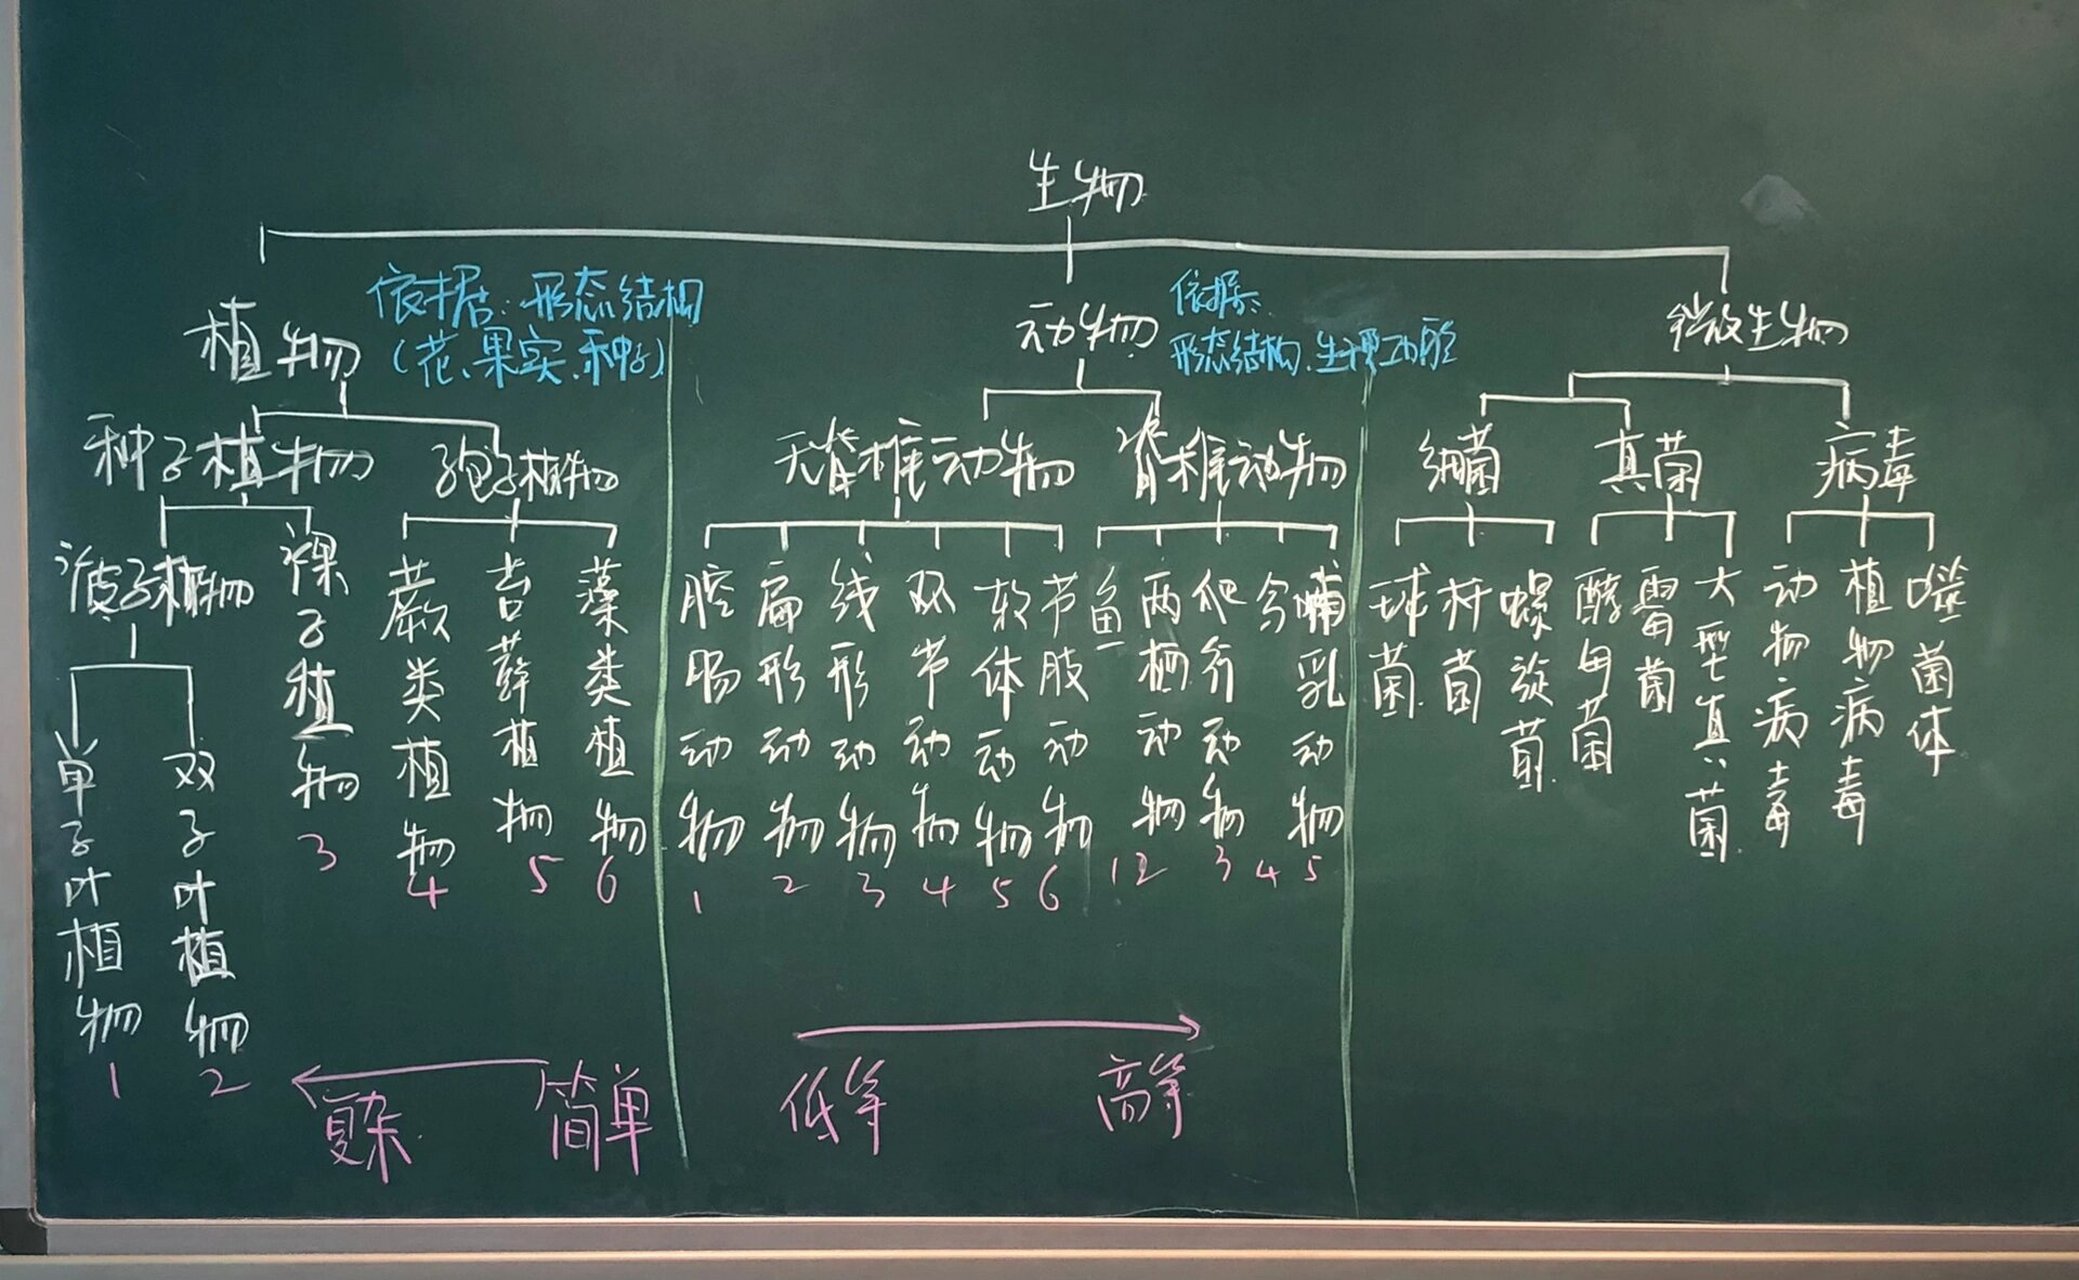 生物
植物
依据：形态结构
（花、果实、种子）
动物
依据：
形态结构、生理功能
微生物
种子植物
孢子植物
无脊椎动物
脊椎动物
细菌
真菌
病毒
被子植物
裸子植物
蕨类植物
苔藓植物
藻类植物
腔肠动物
扁形动物
线形动物
环节动物
软体动物
节肢动物
鱼
两栖动物
爬行动物
鸟
哺乳动物
球菌
杆菌
螺旋菌
酵母菌
霉菌
大型真菌
动物病毒
植物病毒
噬菌体
单子叶植物
双子叶植物
3
4
5
6
1
2
3
4
5
6
1
2
3
4
5
1
2
复杂
简单
低等
高等